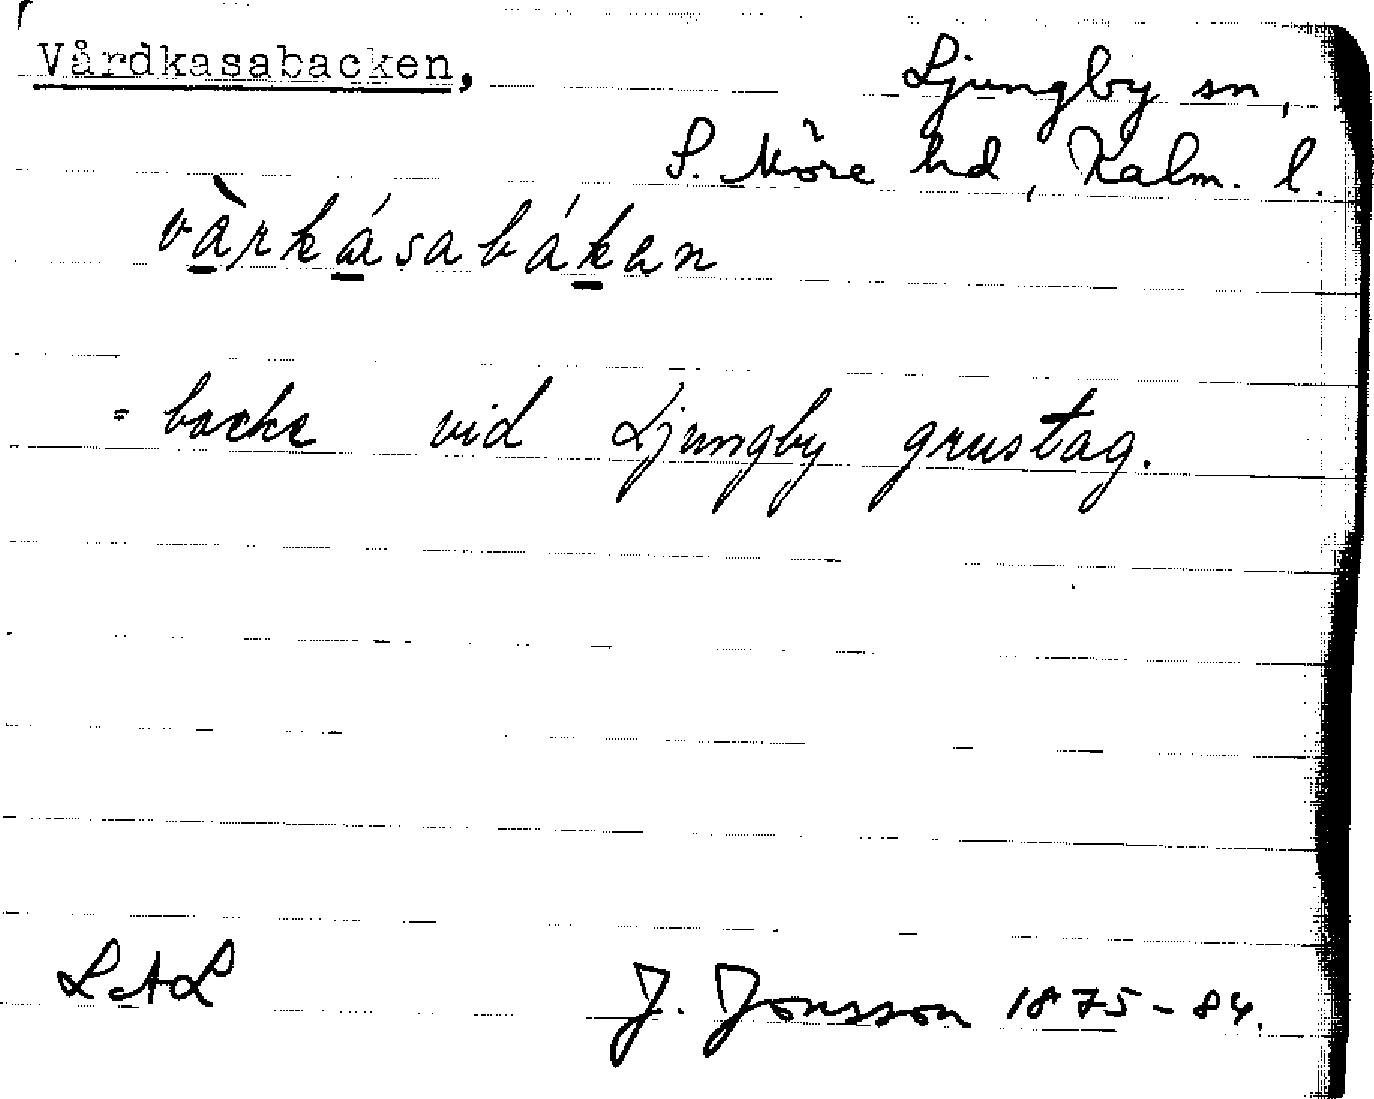 Vårdkasabacken,
Ljungby sn,
S. Möre hd, Kalm. l.
vàrkásabákan
= backe vid Ljungby grustag.
LAL
J. Jonsson 1875-84.